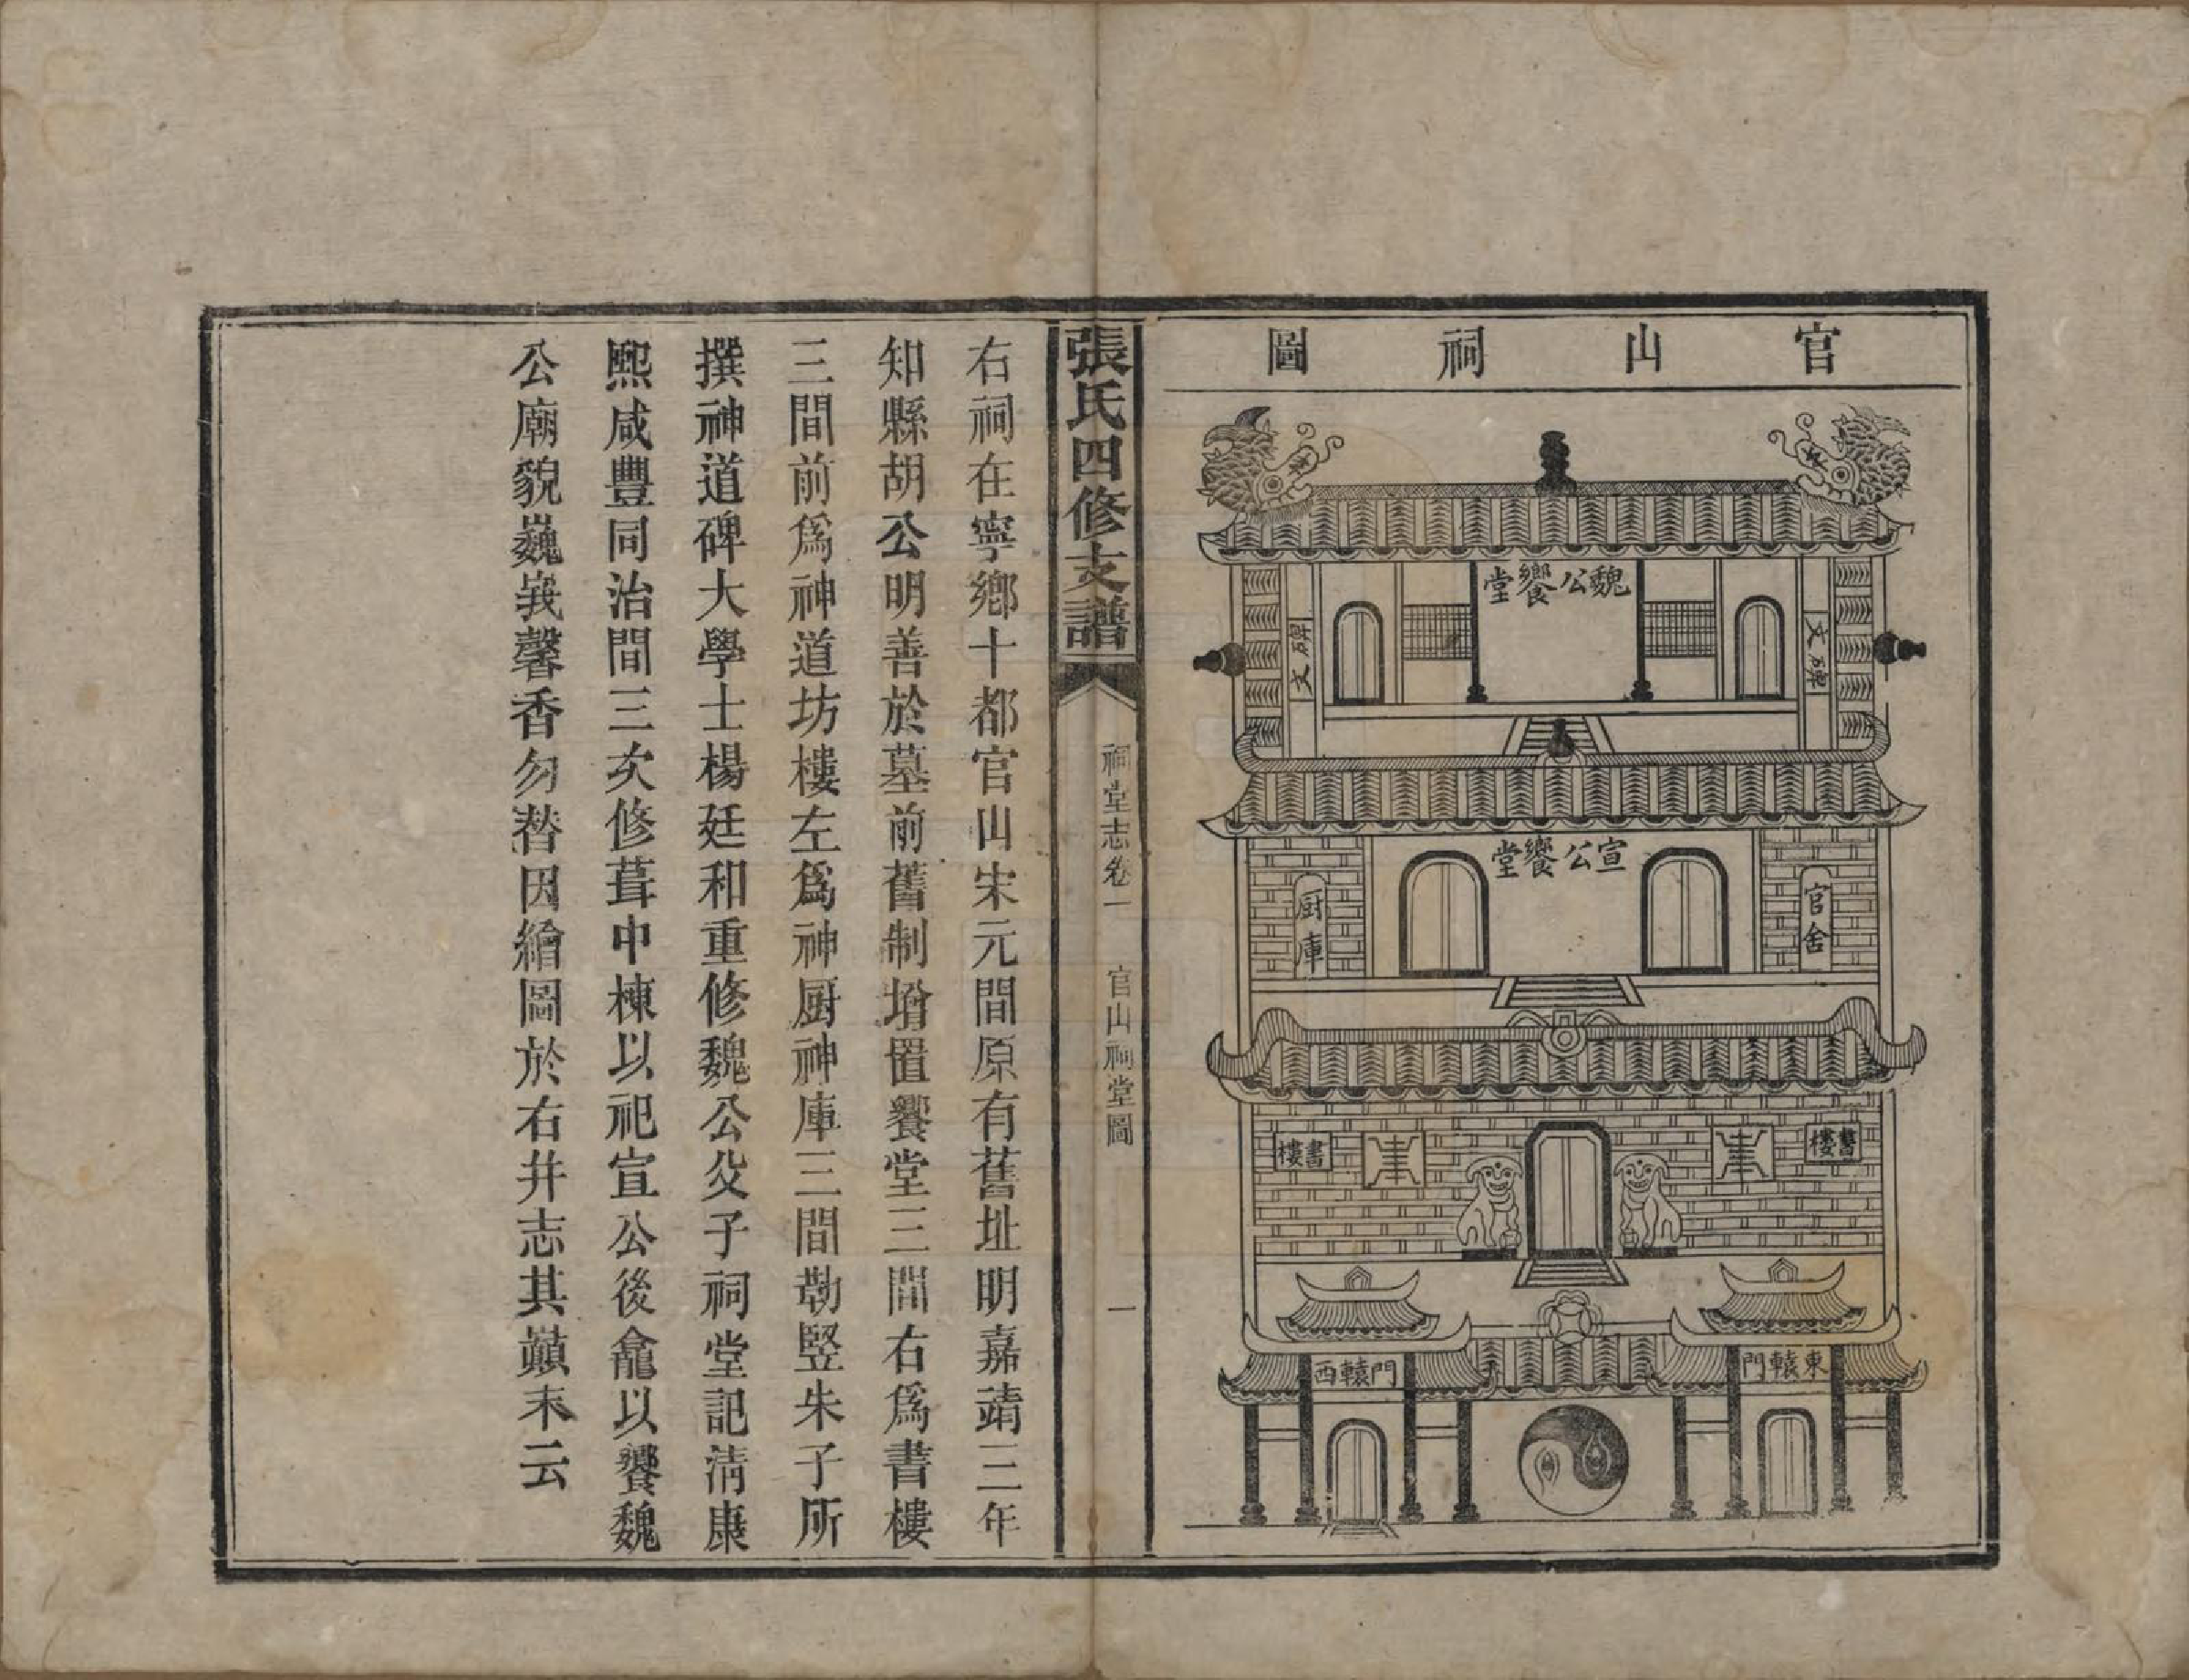 官山祠圖
魏公饗堂
文碑
文碑
宣公饗堂
官舍
厨庫
書樓
書樓
東轅門
西轅門
張氏四修支譜
祠堂志卷一
官山祠堂圖
一
右祠在寧鄉十都官山宋元間原有舊址明嘉靖三年
知縣胡公明善於墓前舊制增置饗堂三間右爲書樓
三間前爲神道坊樓左爲神厨神庫三間勒竪朱子所
撰神道碑大學士楊廷和重修魏公父子祠堂記清康
熙咸豐同治間三次修葺中棟以祀宣公後龕以饗魏
公廟貌巍峩馨香勿替因繪圖於右并志其巔末云